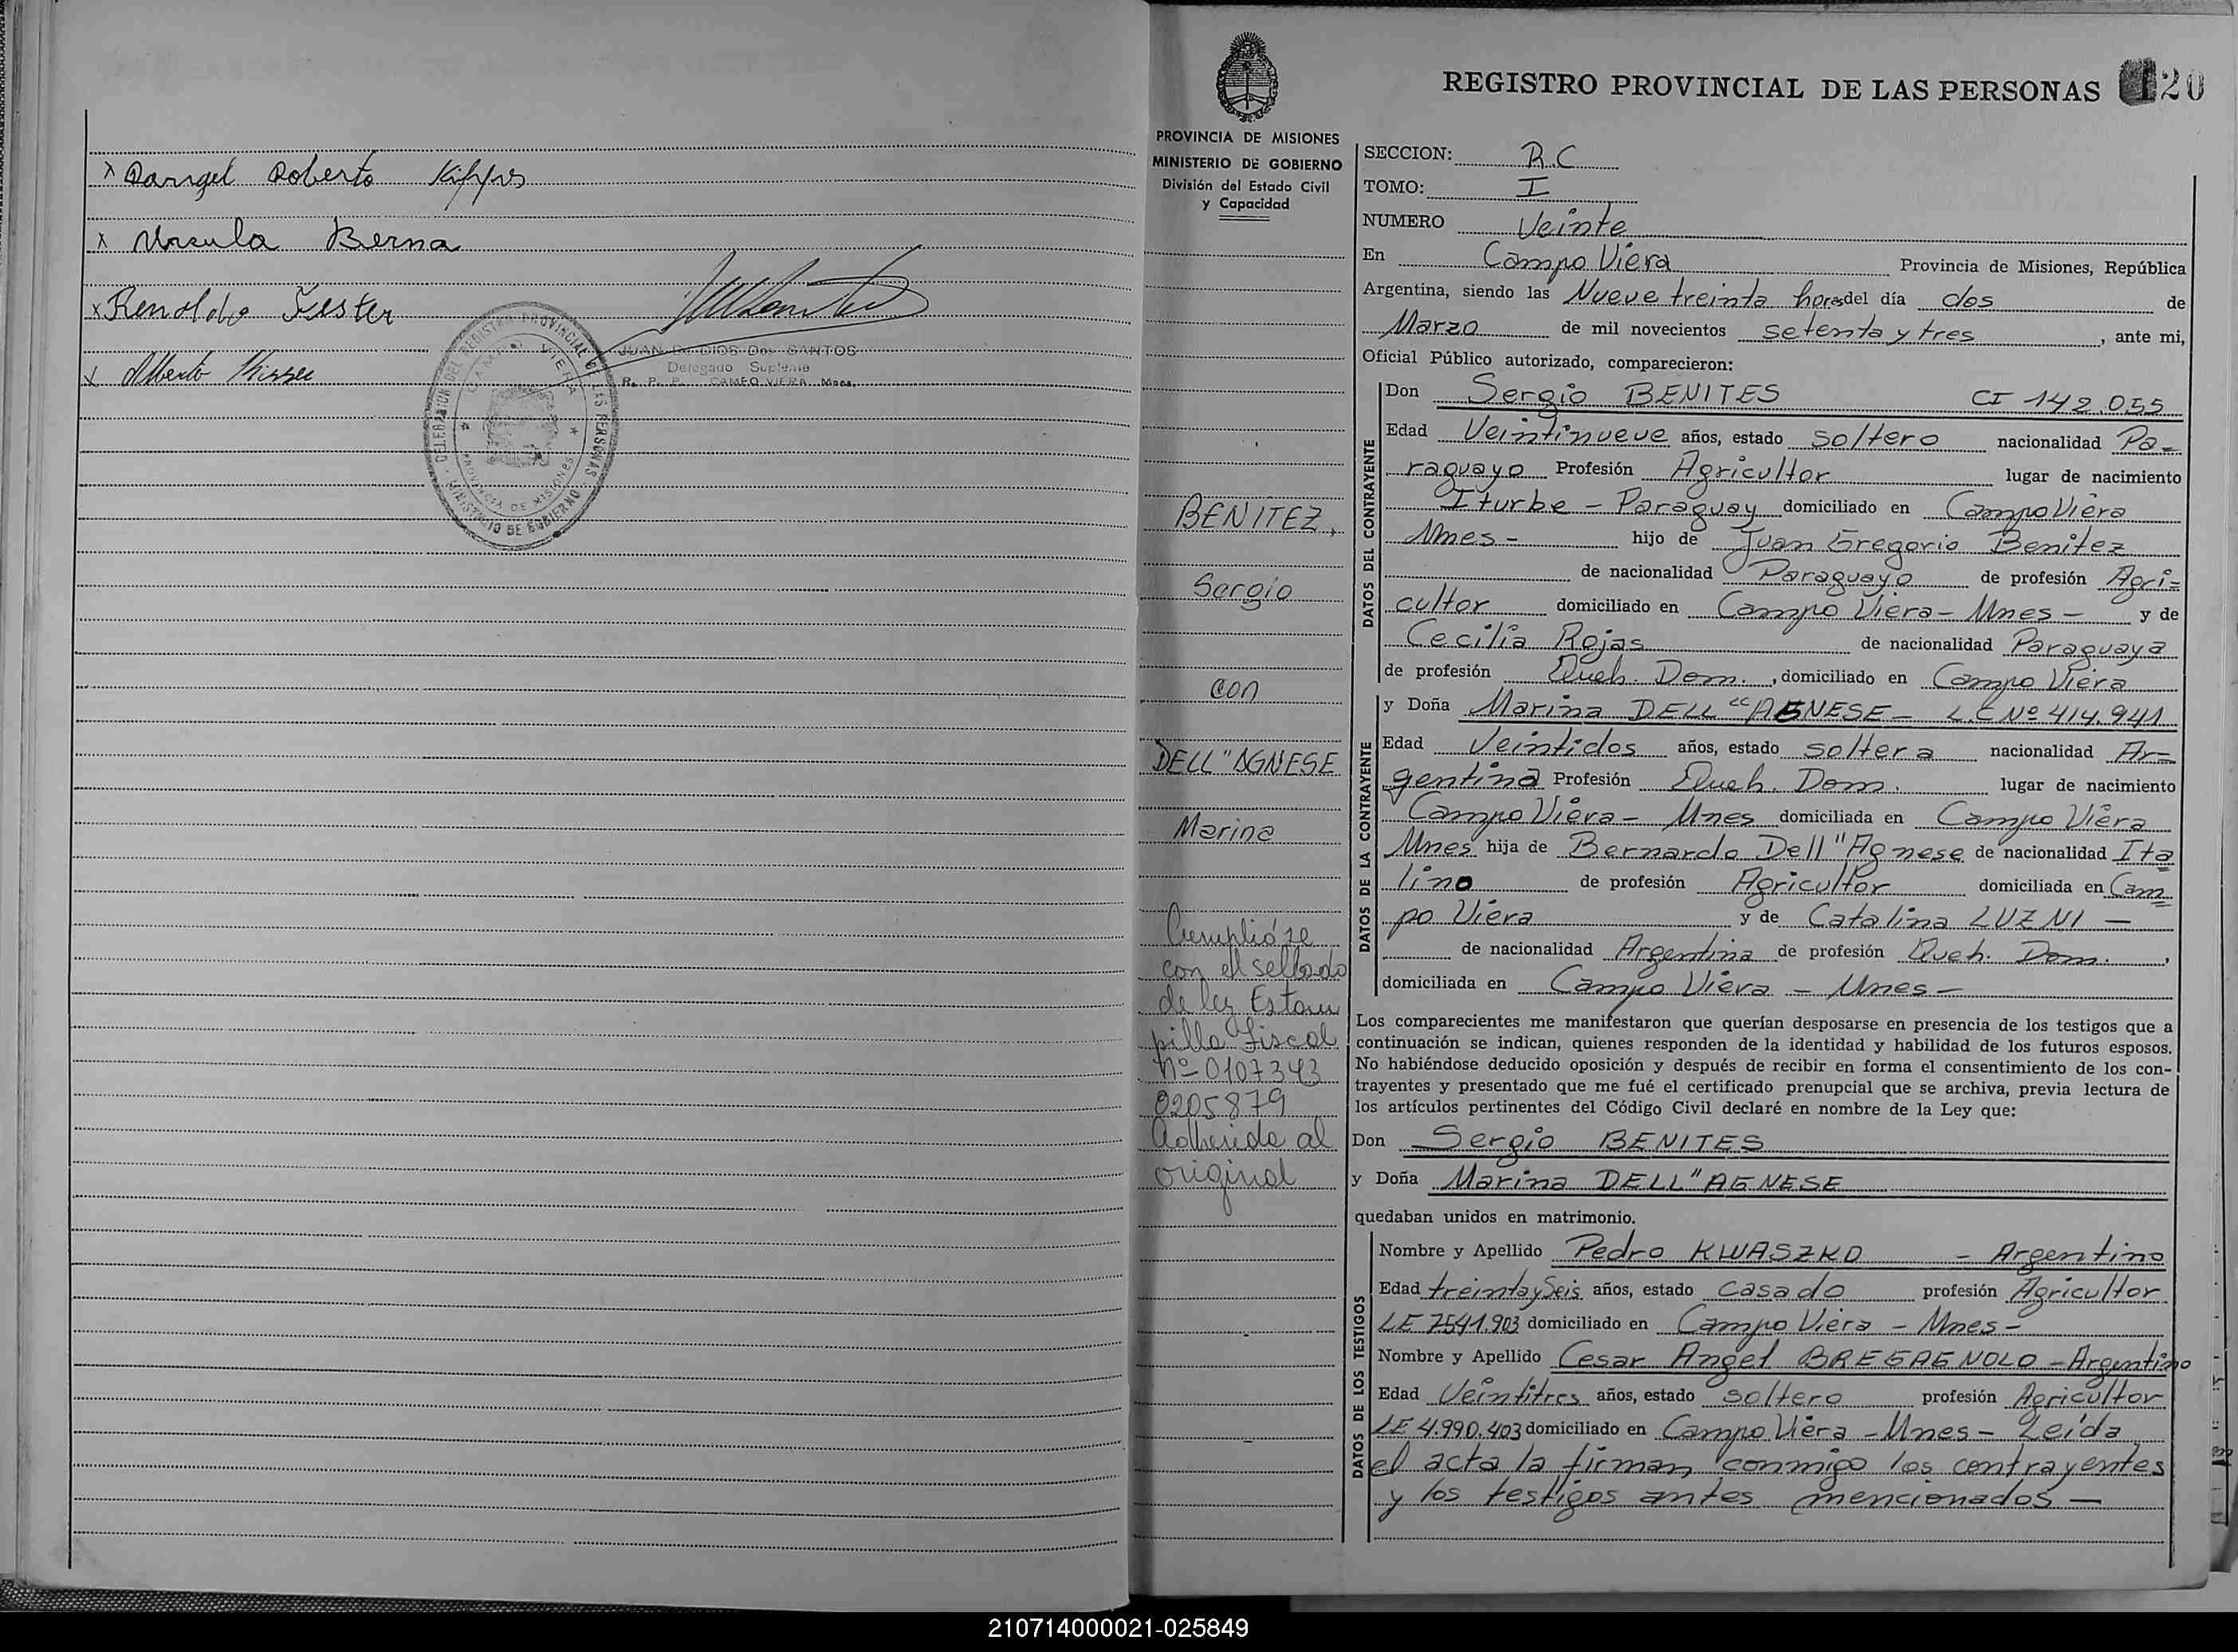 x Rangel Roberto Kipps
x Ursula Berna
x Renoldo Fester
x Alberto
JUAN DE DIOS Dos SANTOS
Delegado Suplente
R. P. P. CAMPO VIERA Mnes.
DELEGACION DEL REGISTRO PROVINCIAL DE LAS PERSONAS
MINISTERIO DE GOBIERNO
CAMPO VIERA
PROVINCIA DE MISIONES
PROVINCIA DE MISIONES
MINISTERIO DE GOBIERNO
División del Estado Civil
y Capacidad
BENITEZ,
Sergio
con
DELL"AGNESE
Marina
Cumplióse
con el sellado
de ley Estam
pilla fiscal
Nº 0107343
0205879
Adherida al
original
REGISTRO PROVINCIAL DE LAS PERSONAS 120
SECCION: R.C
TOMO: I
NUMERO Veinte
En Campo Viera Provincia de Misiones, República
Argentina, siendo las Nueve treinta horas del día dos de
Marzo de mil novecientos setenta y tres, ante mi,
Oficial Público autorizado, comparecieron:
DATOS DEL CONTRAYENTE
Don Sergio BENITES CI 142.055
Edad Veintinueve años, estado soltero nacionalidad Pa=
raguayo Profesión Agricultor lugar de nacimiento
Iturbe - Paraguay domiciliado en Campo Viera
Mnes - hijo de Juan Gregorio Benitez
de nacionalidad Paraguayo de profesión Agri=
cultor domiciliado en Campo Viera - Mnes - y de
Cecilia Rojas de nacionalidad Paraguaya
de profesión Queh. Dom., domiciliado en Campo Viera
DATOS DE LA CONTRAYENTE
y Doña Marina DELL "AGNESE - L.C Nº 414.941
Edad Veintidos años, estado soltera nacionalidad Ar=
gentina Profesión Queh. Dom. lugar de nacimiento
Campo Viera - Mnes domiciliada en Campo Viera
Mnes hija de Bernardo Dell"Agnese de nacionalidad Ita
lino de profesión Agricultor domiciliada en Cam=
po Viera y de Catalina LUZNI -
de nacionalidad Argentina de profesión Queh. Dom.,
domiciliada en Campo Viera - Mnes -
Los comparecientes me manifestaron que querían desposarse en presencia de los testigos que a
continuación se indican, quienes responden de la identidad y habilidad de los futuros esposos.
No habiéndose deducido oposición y después de recibir en forma el consentimiento de los con-
trayentes y presentado que me fué el certificado prenupcial que se archiva, previa lectura de
los artículos pertinentes del Código Civil declaré en nombre de la Ley que:
Don Sergio BENITES
y Doña Marina DELL"AGNESE
quedaban unidos en matrimonio.
DATOS DE LOS TESTIGOS
Nombre y Apellido Pedro KWASZKO - Argentino
Edad treinta y Seis años, estado casado profesión Agricultor
LE 7541.903 domiciliado en Campo Viera - Mnes -
Nombre y Apellido Cesar Angel BREGAGNOLO - Argentino
Edad Veintitres años, estado soltero profesión Agricultor
LE 4.990.403 domiciliado en Campo Viera - Mnes - Leída
el acta la firman conmigo los contrayentes
y los testigos antes mencionados -
210714000021-025849